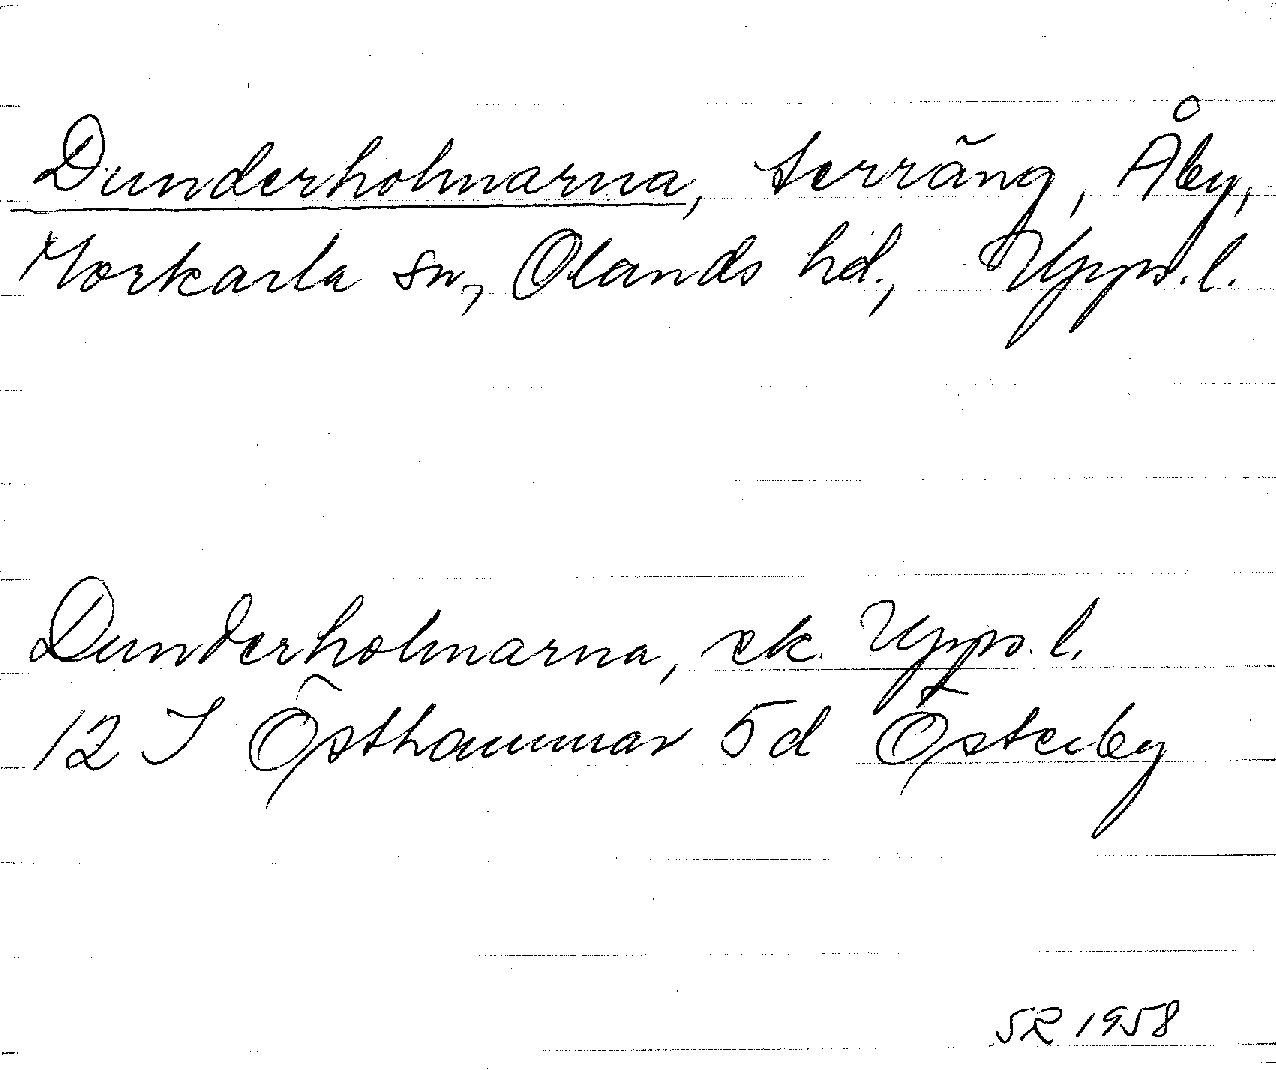 Dunderholmarna, terräng, Åby,
Morkarla sn, Olands hd., Upps. l.
Dunderholmarna, ek. Upps. l.
12 I Östhammar 5d Österby
SR 1958